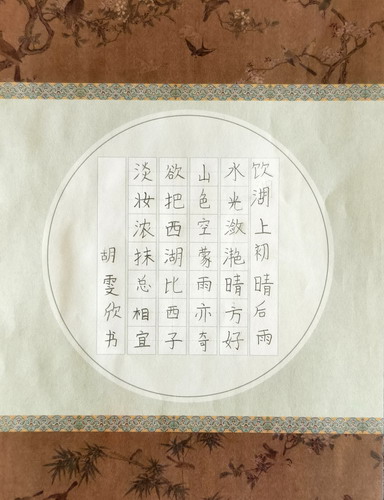 饮湖上初晴后雨
水光潋滟晴方好
山色空蒙雨亦奇
欲把西湖比西子
淡妆浓抹总相宜
胡雯欣书